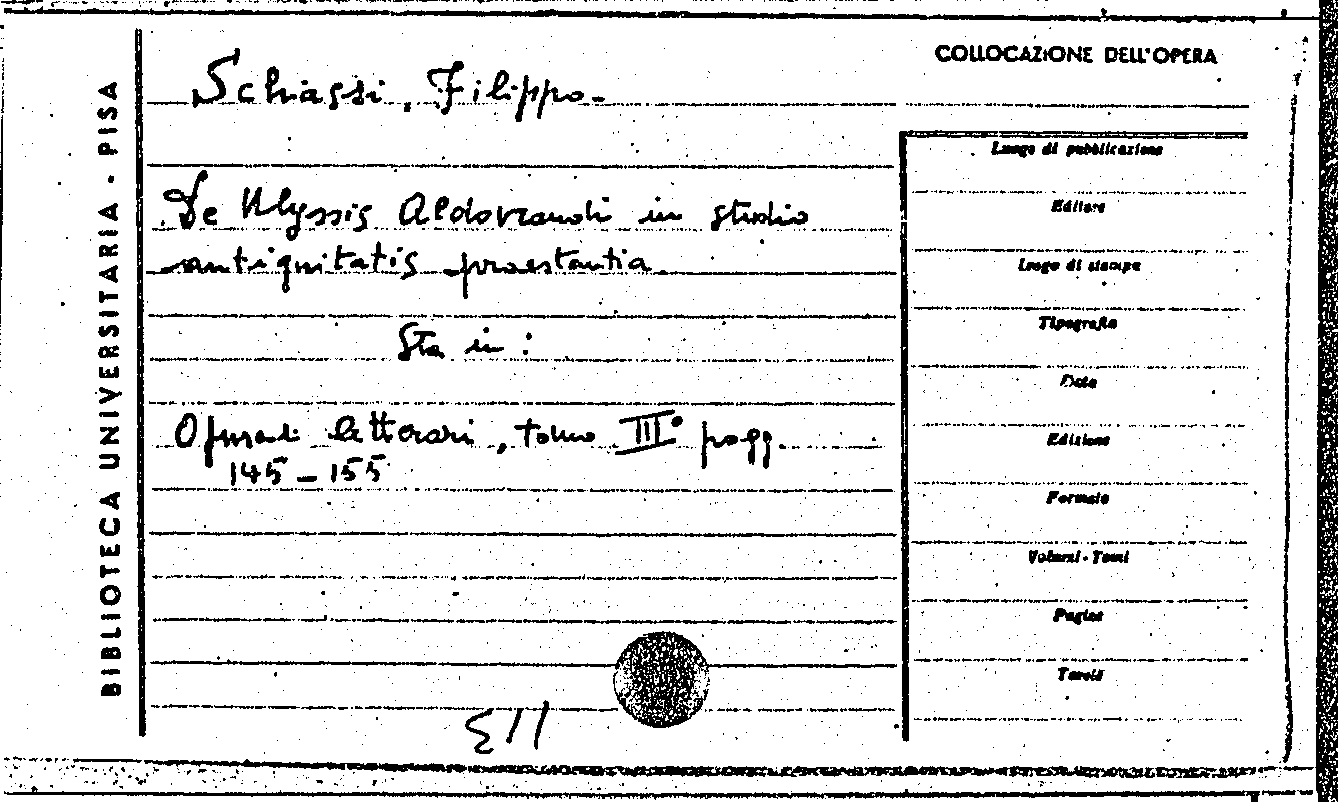 BIBLIOTECA UNIVERSITARIA - PISA
COLLOCAZIONE DELL'OPERA
Schiassi, Filippo.
De Ulyssis Aldovrandi in studio
antiquitatis praestantia
Sta in :
Opuscoli letterari, tomo III° pagg.
145-155
Luogo di pubblicazione
Editore
Luogo di stampa
Tipografia
Data
Edizione
Formato
Volumi - Tomi
Pagine
Tavole